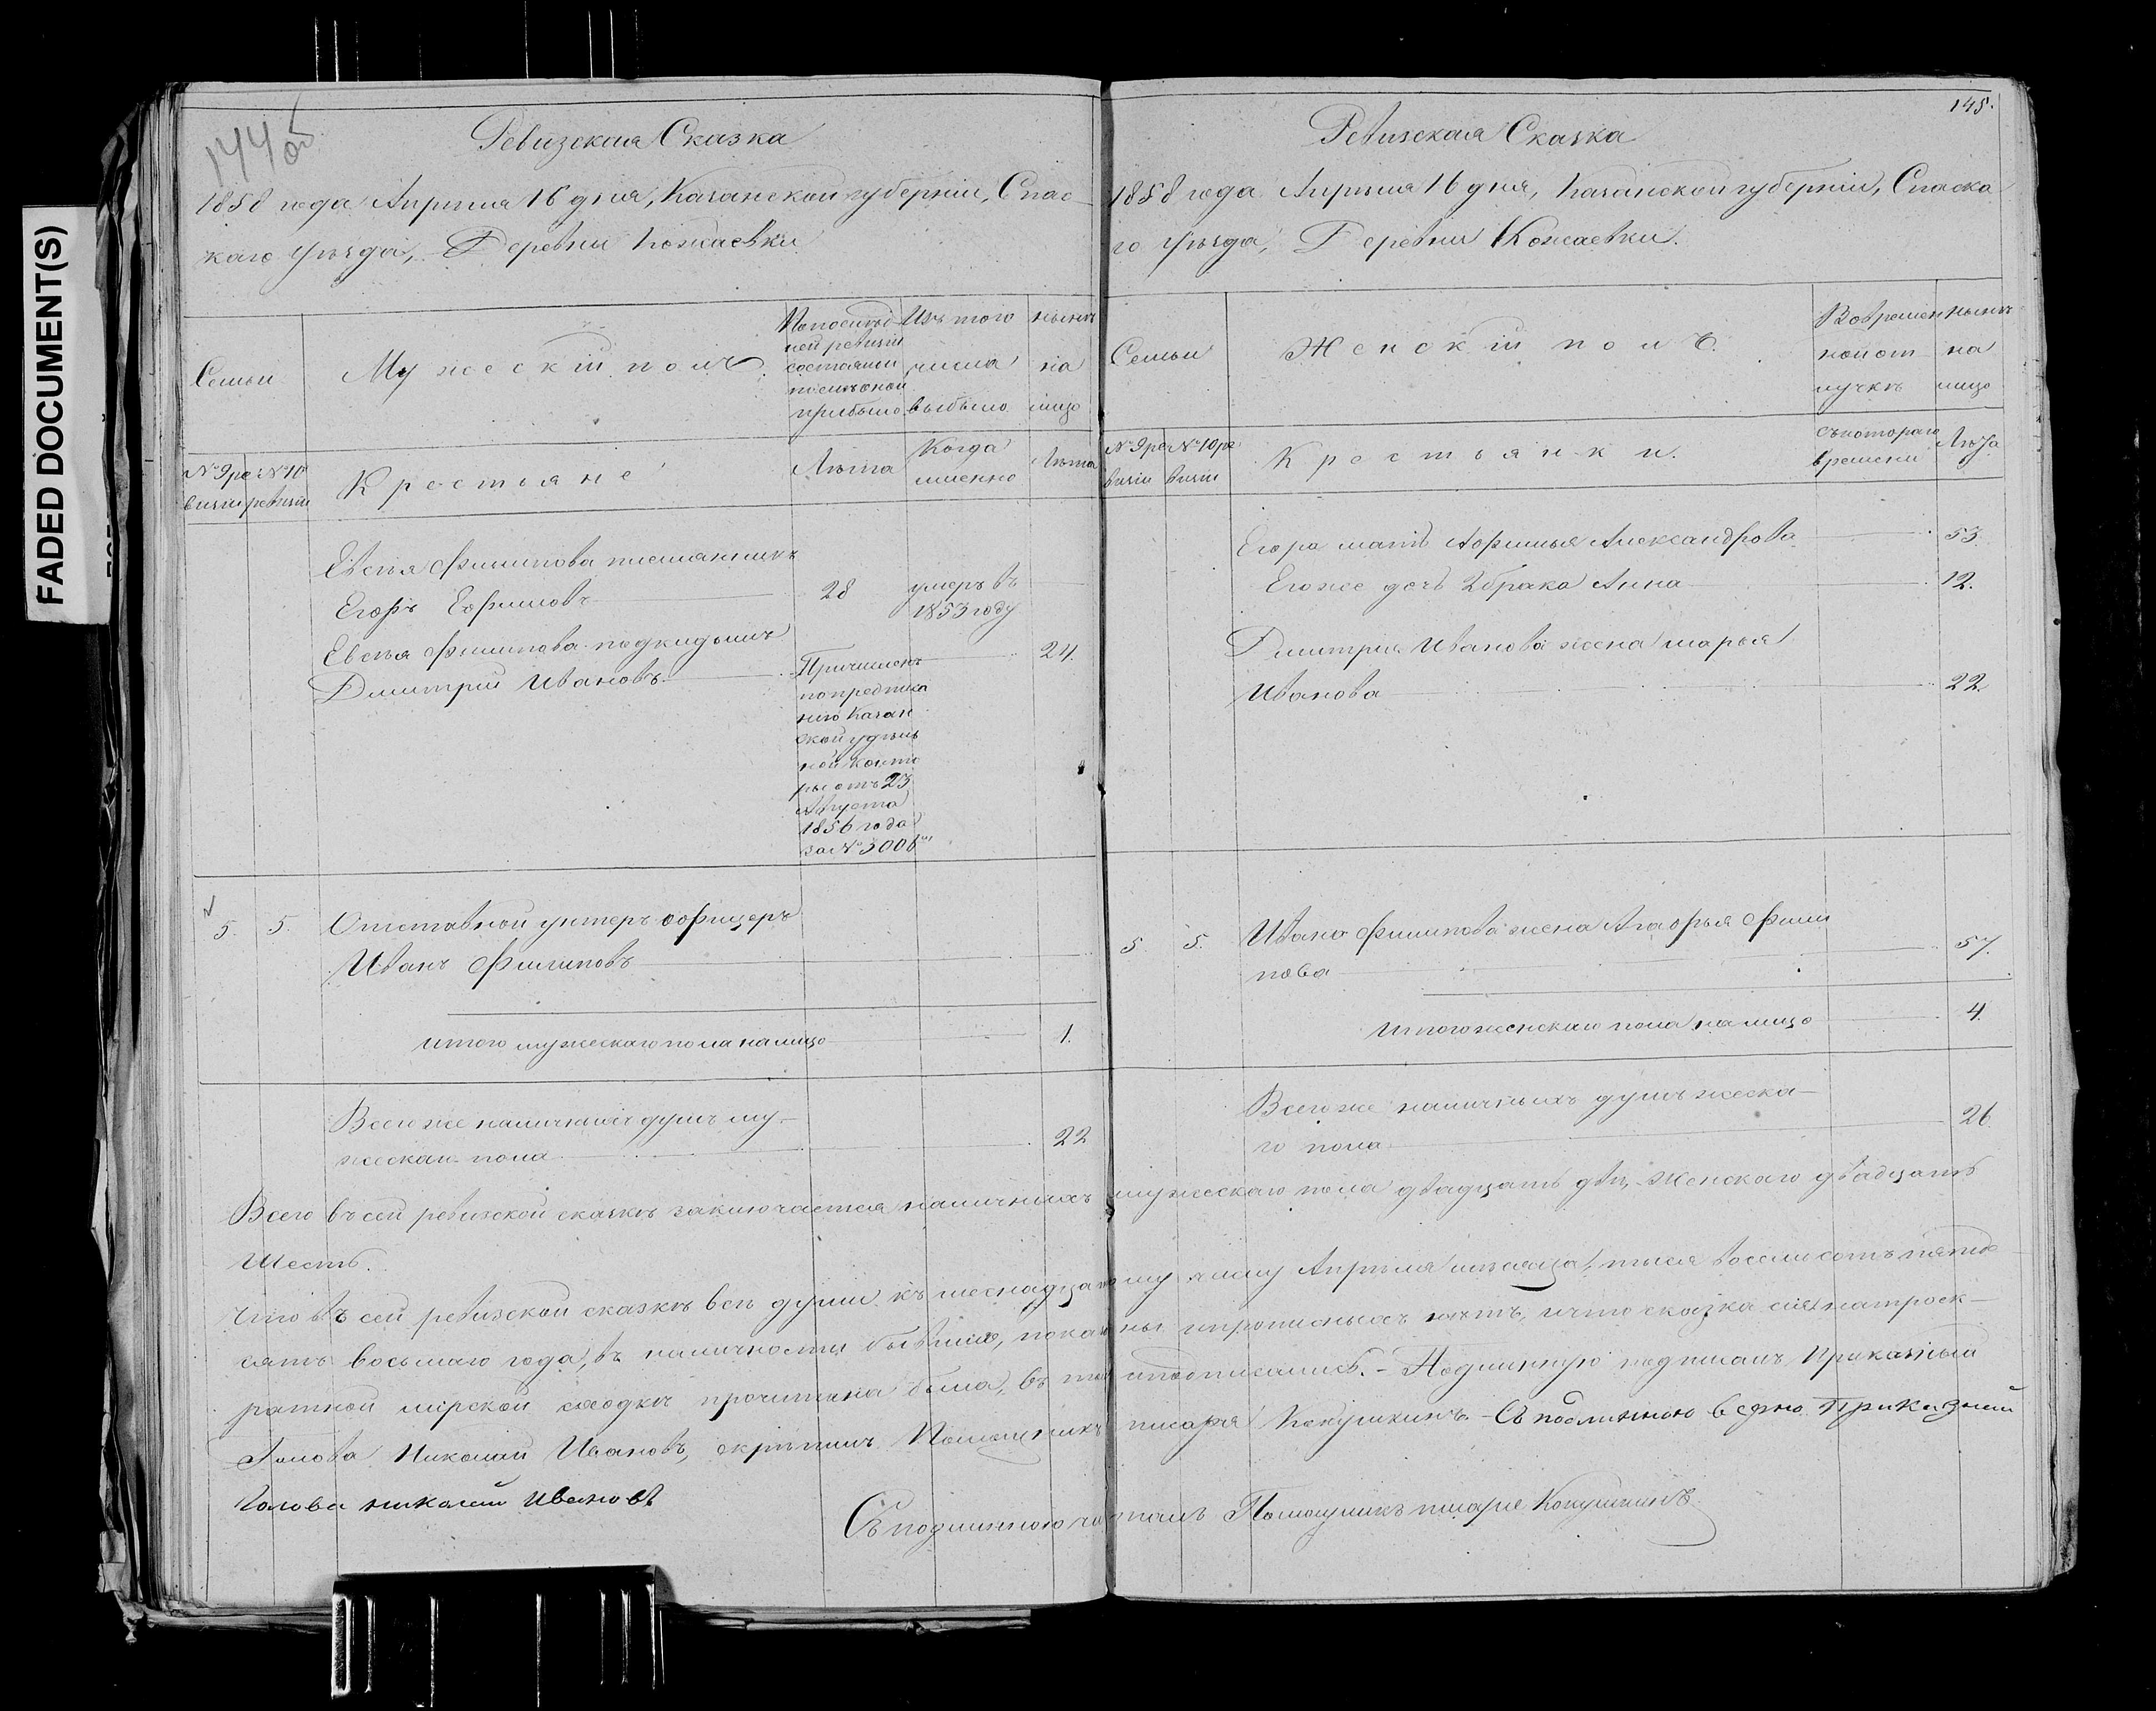 FADED DOCUMENT(S)
144об
Ревизская Сказка
1858 года Апрѣля 16 дня, Казанской губерніи, Спас-
каго уѣзда, Деревни Кожаевки
Семьи
Мужескій полъ
По послѣд
ней ревизіи
состояли
и послѣ оной
прибыло
Изъ того
числа
выбыло
нынѣ
на
лицо
№ 9 ре
визіи
№ 10
ревизіи
Крестьяне
Лѣта
Когда
именно
Лѣта
Евсѣя Филипова племянникъ
Егоръ Ефимовъ
28
умеръ въ
1853 году
Евсѣя Филипова подкидышъ
Дмитрій Ивановъ
Причисленъ
по предписа
нію Казан
ской удѣль
ной конто
ры отъ 23
Августа
1856 года
за №
24.
5. 5. Отставной унтеръ офицеръ
Иванъ Филиповъ
итого мужескаго пола на лицо 1.
Всего же наличныхъ душъ му-
жескаго пола 22
145.
Ревизская Сказка
1858 года Апрѣля 16 дня, Казанской губерніи, Спаска
го уѣзда, Деревни Кожаевки.
Семьи
Женскій полъ.
Во времен
ной от
лучкѣ
нынѣ
на
лицо
№ 9 ре
визіи
№ 10 ре
визіи
Крестьянки.
съ котораго
времени
Лѣта
Егора мать Афимья Александрова 53.
Его же дочь 2 брака Анна 12.
Дмитрія Иванова жена Марья
Иванова 22
5. 5. Ивана Филипова жена Агафья Фили
пова 57.
Итого женскаго пола на лицо 4.
Всего же наличныхъ душъ женска-
го пола 26
Всего въ сей ревизской сказкѣ заключается наличныхъ мужескаго пола двадцать двѣ, Женскаго двадцать
Шесть.
Что въ сей ревизской сказкѣ всѣ души къ шеснадцатому числу Апрѣля мѣсяца, тыся восемь сотъ пятьде
сятъ восьмаго года, въ наличности бывшія, показаны и прописныхъ нѣтъ, и что сказка сія на троек-
ратной мірской сходкѣ прочитана была, въ томъ и подписались. - Подлинную подписалъ Приказный
Голова Николай Ивановъ, скрѣпилъ Помощникъ писаря Кокушкинъ. - Съ подлинною верно Приказный
Голова николай Ивановъ
Съ подлинною читалъ Помощникъ писаря Кокушкинъ